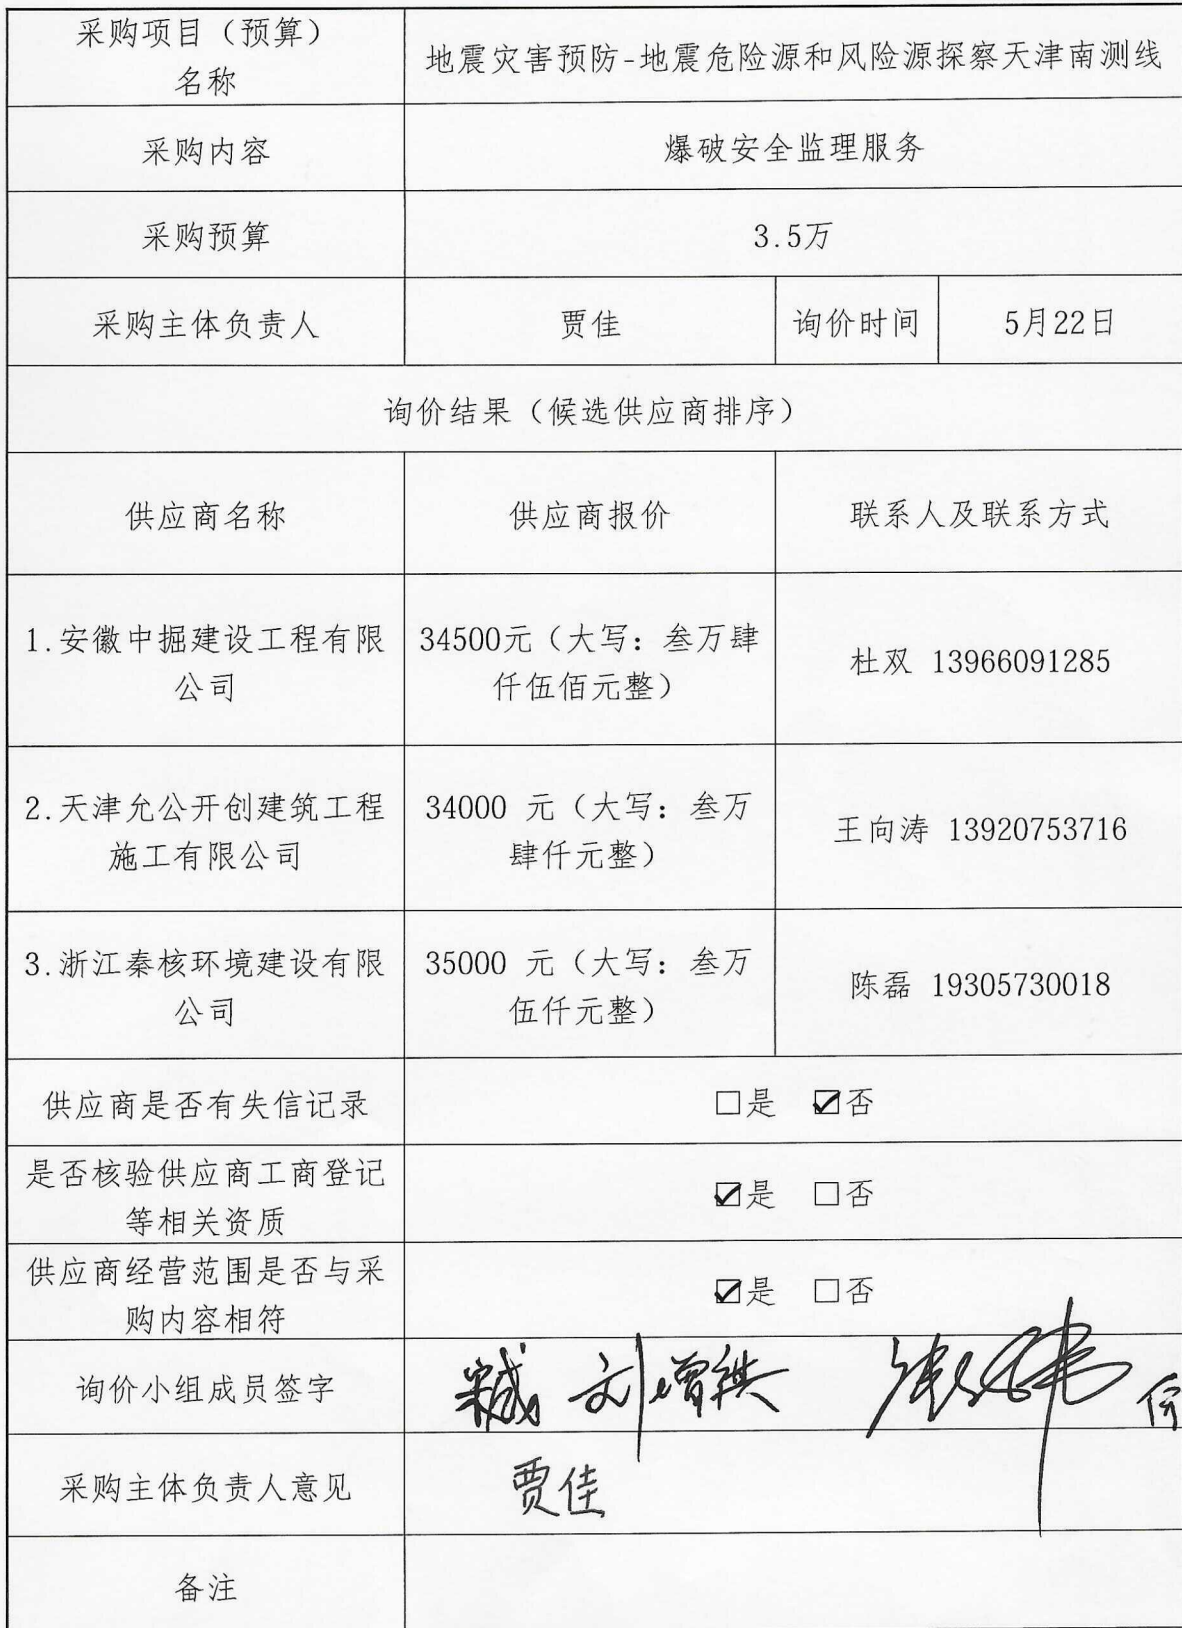 采购项目（预算）
名称
地震灾害预防-地震危险源和风险源探察天津南测线
采购内容
爆破安全监理服务
采购预算
3.5万
采购主体负责人
贾佳
询价时间
5月22日
询价结果（候选供应商排序）
供应商名称
供应商报价
联系人及联系方式
1.安徽中掘建设工程有限
公司
34500元（大写：叁万肆
仟伍佰元整）
杜双 13966091285
2.天津允公开创建筑工程
施工有限公司
34000 元（大写：叁万
肆仟元整）
王向涛 13920753716
3.浙江秦核环境建设有限
公司
35000 元（大写：叁万
伍仟元整）
陈磊 19305730018
供应商是否有失信记录
□是 ☑否
是否核验供应商工商登记
等相关资质
☑是 □否
供应商经营范围是否与采
购内容相符
☑是 □否
询价小组成员签字
刘增祺
采购主体负责人意见
贾佳
备注